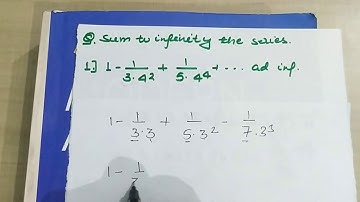 Q. Sum to infinity the series.
1.] 1 - 1/3·4² + 1/5·4⁴ - ... ad inf.
1 - 1/3·3 + 1/5·3² - 1/7·3³
1 - 1/3